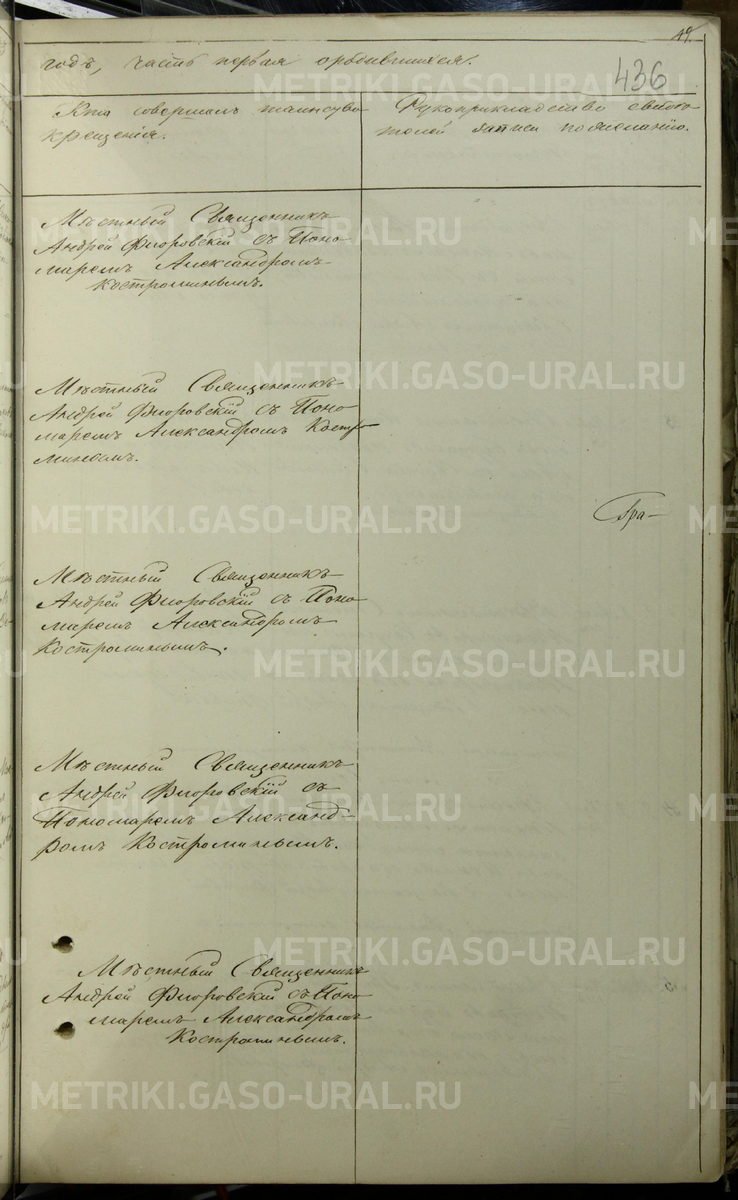 49.
годъ, часть первая о родившихся.
436
Кто совершалъ таинство
крещенія.
Рукоприкладство свидѣ-
телей записи по желанію.
Мѣстный Священникъ
Андрей Флоровскій съ Поно
маремъ Александромъ
Костроминымъ.
Мѣстный Священникъ
Андрей Флоровскій съ Поно
маремъ Александромъ Костро
минымъ.
Гра-
Мѣстный Священникъ
Андрей Флоровскій съ Поно
маремъ Александромъ
Костроминымъ.
Мѣстный Священникъ
Андрей Флоровскій съ
Пономаремъ Александ-
ромъ Костроминымъ.
Мѣстный Священникъ
Андрей Флоровскій съ Поно
маремъ Александромъ
Костроминымъ.
METRIKI.GASO-URAL.RU